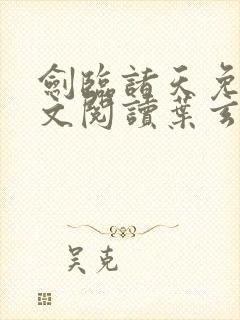 劍臨諸天免
文閱讀葉玄
吴克